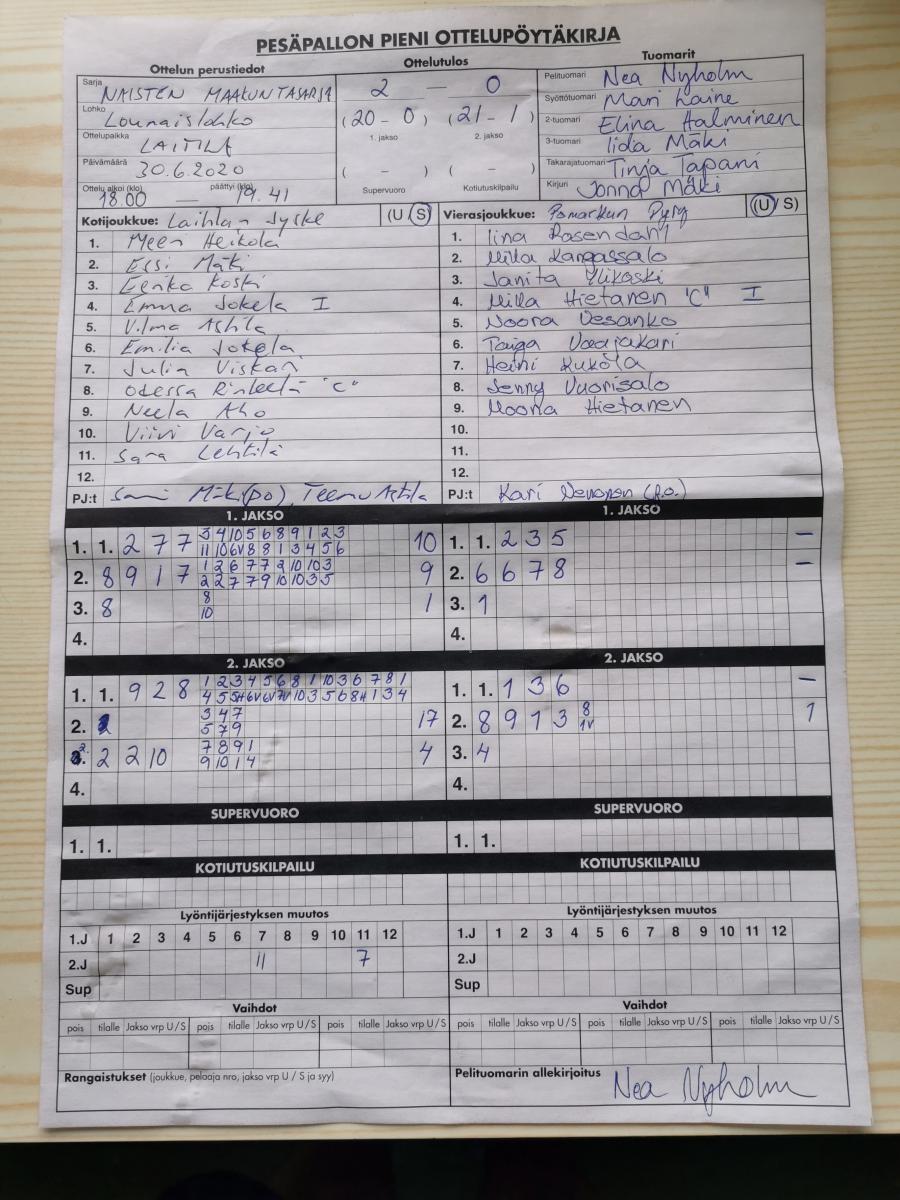 PESÄPALLON PIENI OTTELUPÖYTÄKIRJA
Ottelun perustiedot Ottelutulos Tuomarit
Sarja NAISTEN MAAKUNTASARJA 2 — 0 Pelituomari Nea Nyholm
Lohko Lounaislohko (20 - 0) (21 - 1) Syöttötuomari Mari Laine
1. jakso 2. jakso 2-tuomari Elina Halminen
Ottelupaikka LAITILA 3-tuomari Iida Mäki
Päivämäärä 30.6.2020 ( - ) ( - ) Takarajatuomari Tinja Tapani
Ottelu alkoi (klo) 18.00 — päättyi (klo) 19.41 Supervuoro Kotiutuskilpailu Kirjuri Jonna Mäki
Kotijoukkue: Laitilan Jyske (U / S) Vierasjoukkue: Pomarkun Pyry (U / S)
1. Meeri Heikola 1. Iina Rosendahl
2. Essi Mäki 2. Milla Kangassalo
3. Eerika Koski 3. Janita Ylikoski
4. Emma Jokela I 4. Milla Hietanen "C" I
5. Vilma Astila 5. Noora Vesanko
6. Emilia Jokela 6. Taiga Vaajakari
7. Julia Viskari 7. Heini Kukola
8. Odessa "C" 8. Jenny Vuorisalo
9. Neela Aho 9. Noona Hietanen
10. Viivi Varjo 10.
11. Sara Lehtilä 11.
12. 12.
PJ:t Sami Mäki (po), Teemu Astila PJ:t Kari (p.o.)
1. JAKSO 1. JAKSO
1. 1. 2 7 7 3 4 10 5 6 8 9 1 2 3 10 1. 1. 2 3 5 –
11 10 6V 8 8 1 3 4 5 6
2. 8 9 1 7 1 2 6 7 7 9 10 10 3 9 2. 6 6 7 8 –
2 2 7 7 9 10 10 3 5
3. 8 8 1 3. 1
10
4. 4.
2. JAKSO 2. JAKSO
1. 1. 9 2 8 1 2 3 4 5 6 8 1 10 3 6 7 8 1 1. 1. 1 3 6 –
4 5 5H 6V 6V 7V 10 3 5 6 8H 1 3 4
2. 3 4 7 17 2. 8 9 1 3 8 1
5 7 9 1V
2. 2 2 10 7 8 9 1 4 3. 4
9 10 1 4
4. 4.
SUPERVUORO SUPERVUORO
1. 1. 1. 1.
KOTIUTUSKILPAILU KOTIUTUSKILPAILU
Lyöntijärjestyksen muutos Lyöntijärjestyksen muutos
1.J 1 2 3 4 5 6 7 8 9 10 11 12 1.J 1 2 3 4 5 6 7 8 9 10 11 12
2.J 11 7 2.J
Sup Sup
Vaihdot Vaihdot
pois tilalle Jakso vrp U / S pois tilalle Jakso vrp U / S pois tilalle Jakso vrp U / S pois tilalle Jakso vrp U / S pois tilalle Jakso vrp U / S pois tilalle Jakso vrp U / S
Rangaistukset (joukkue, pelaaja nro, jakso vrp U / S ja syy) Pelituomarin allekirjoitus Nea Nyholm